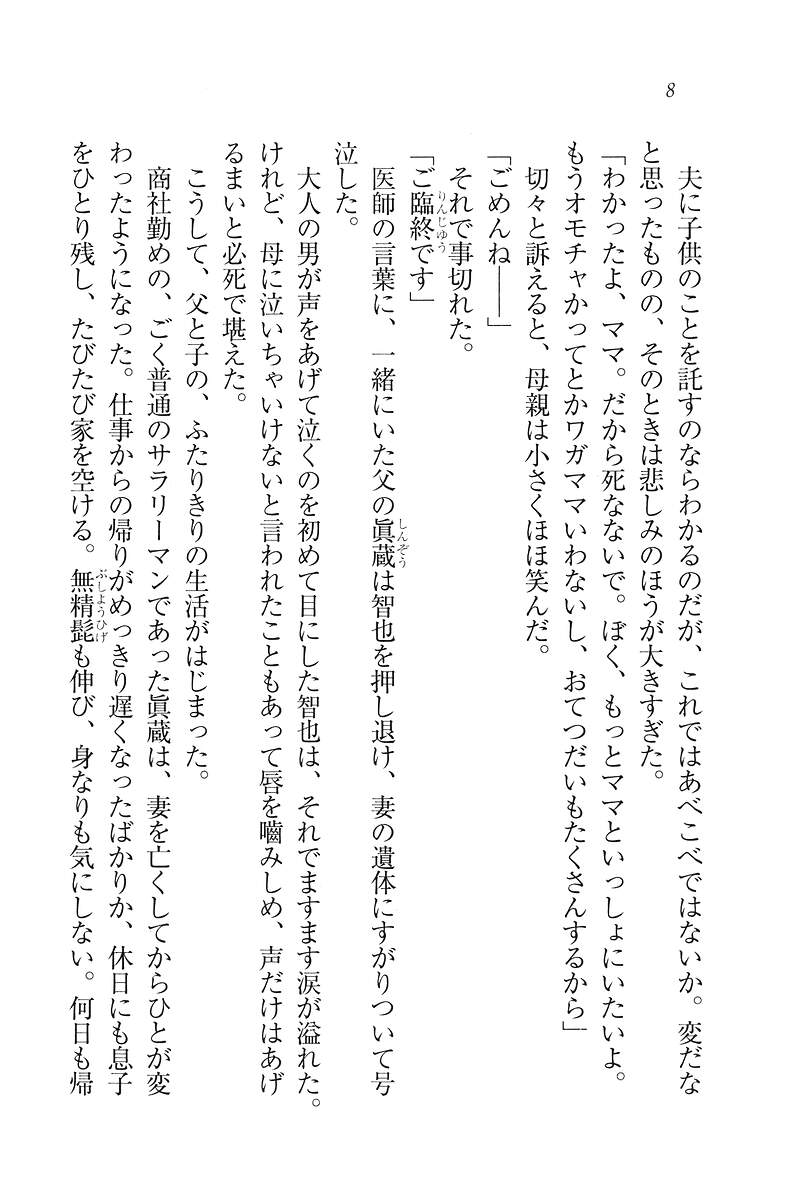 8
夫に子供のことを託すのならわかるのだが、これではあべこべではないか。変だな
と思ったものの、そのときは悲しみのほうが大きすぎた。
「わかったよ、ママ。だから死なないで。ぼく、もっとママといっしょにいたいよ。
もうオモチャかってとかワガママいわないし、おてつだいもたくさんするから」
切々と訴えると、母親は小さくほほ笑んだ。
「ごめんね――」
それで事切れた。
「ご臨終です」
りんじゅう
医師の言葉に、一緒にいた父の眞蔵は智也を押し退け、妻の遺体にすがりついて号
しんぞう
泣した。
大人の男が声をあげて泣くのを初めて目にした智也は、それでますます涙が溢れた。
けれど、母に泣いちゃいけないと言われたこともあって唇を嚙みしめ、声だけはあげ
るまいと必死で堪えた。
こうして、父と子の、ふたりきりの生活がはじまった。
商社勤めの、ごく普通のサラリーマンであった眞蔵は、妻を亡くしてからひとが変
わったようになった。仕事からの帰りがめっきり遅くなったばかりか、休日にも息子
をひとり残し、たびたび家を空ける。無精髭も伸び、身なりも気にしない。何日も帰
ぶしようひげ